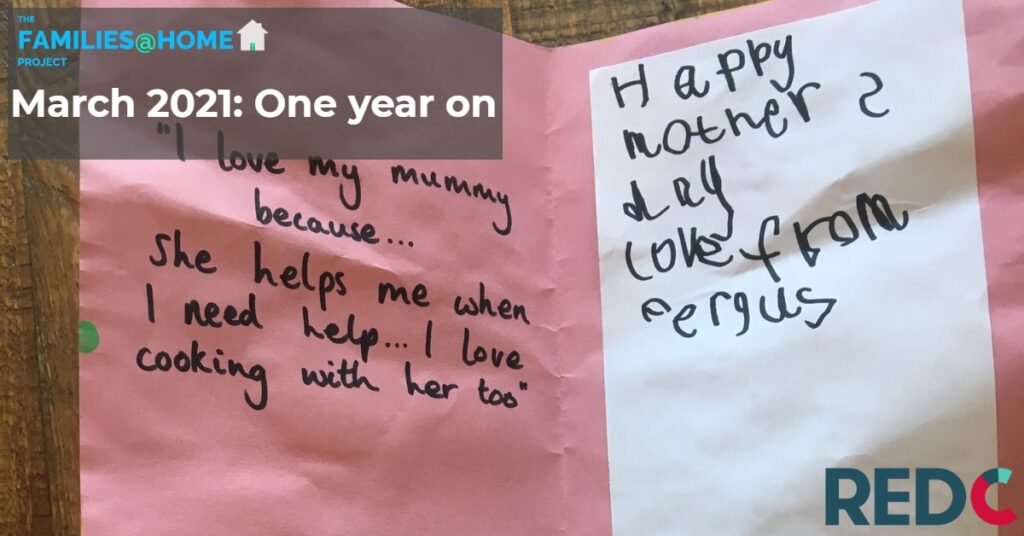 THE
FAMILIES@HOME
PROJECT
March 2021: One year on
"I love my mummy
because...
She helps me when
I need help... I love
cooking with her too"
Happy
mother s
day
love from
Fergus
REDC